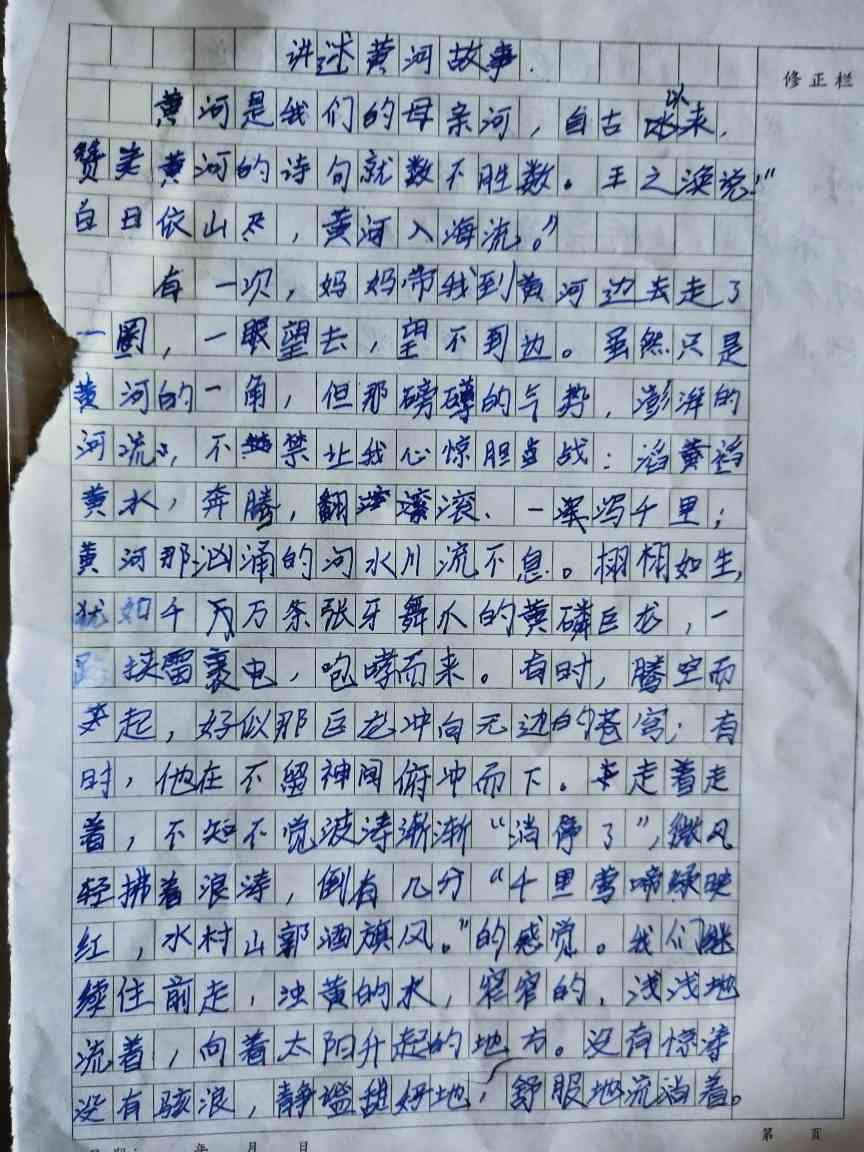 讲述黄河故事.
修正栏
黄河是我们的母亲河，自古以来，
赞美黄河的诗句就数不胜数。王之涣说:"
白日依山尽，黄河入海流。"
有一次，妈妈带我到黄河边去走了
一圈，一眼望去，望不到边。虽然只是
黄河的一角，但那磅礴的气势，澎湃的
河流，不禁让我心惊胆战：滔黄滔
黄水，奔腾，翻滚、一泻千里；
黄河那汹涌的河水川流不息。栩栩如生，
犹如千万万条张牙舞爪的黄磷巨龙，一
路挟雷裹电，咆哮而来。有时，腾空而
起，好似那巨龙冲向无边的苍穹；有
时，他在不留神间俯冲而下。走着走
着，不知不觉波涛渐渐"消停了"，微风
轻拂着浪涛，倒有几分"千里莺啼绿映
红，水村山郭酒旗风。"的感觉。我们继
续往前走，浊黄的水，窄窄的，浅浅地
流着，向着太阳升起的地方。没有惊涛
没有骇浪，静谧甜妙地，舒服地流淌着。
年 月 日
第 页